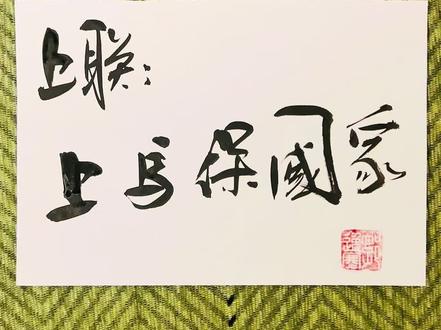 上联:
上马保國家